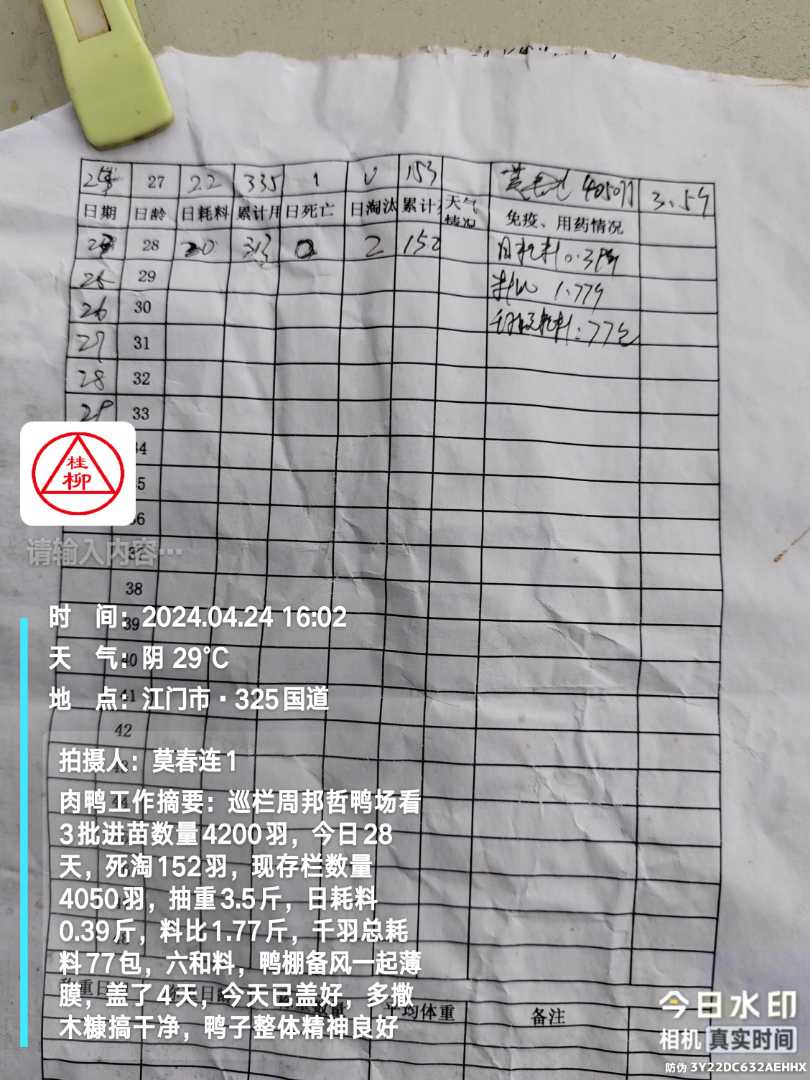 27 22 335 1 0 153
日期 日龄 日耗料 累计用 日死亡 日淘汰 累计 天气情况 免疫、用药情况
28 20 313 0 2 152 日耗料0.39
25 29 料比 1.77
26 30 耗料:77包
27 31
28 32
29 33
34
35
36
37
38
39
40
41
42
桂
柳
请输入内容…
时 间:2024.04.24 16:02
天 气:阴 29℃
地 点:江门市·325国道
拍摄人:莫春连1
肉鸭工作摘要:巡栏周邦哲鸭场看
3批进苗数量4200羽,今日28
天,死淘152羽,现存栏数量
4050羽,抽重3.5斤,日耗料
0.39斤,料比1.77斤,千羽总耗
料77包,六和料,鸭棚备风一起薄
膜,盖了4天,今天已盖好,多撒
木糠搞干净,鸭子整体精神良好
平均体重 备注
今日水印
相机 真实时间
防伪 3Y22DC632AEHHX